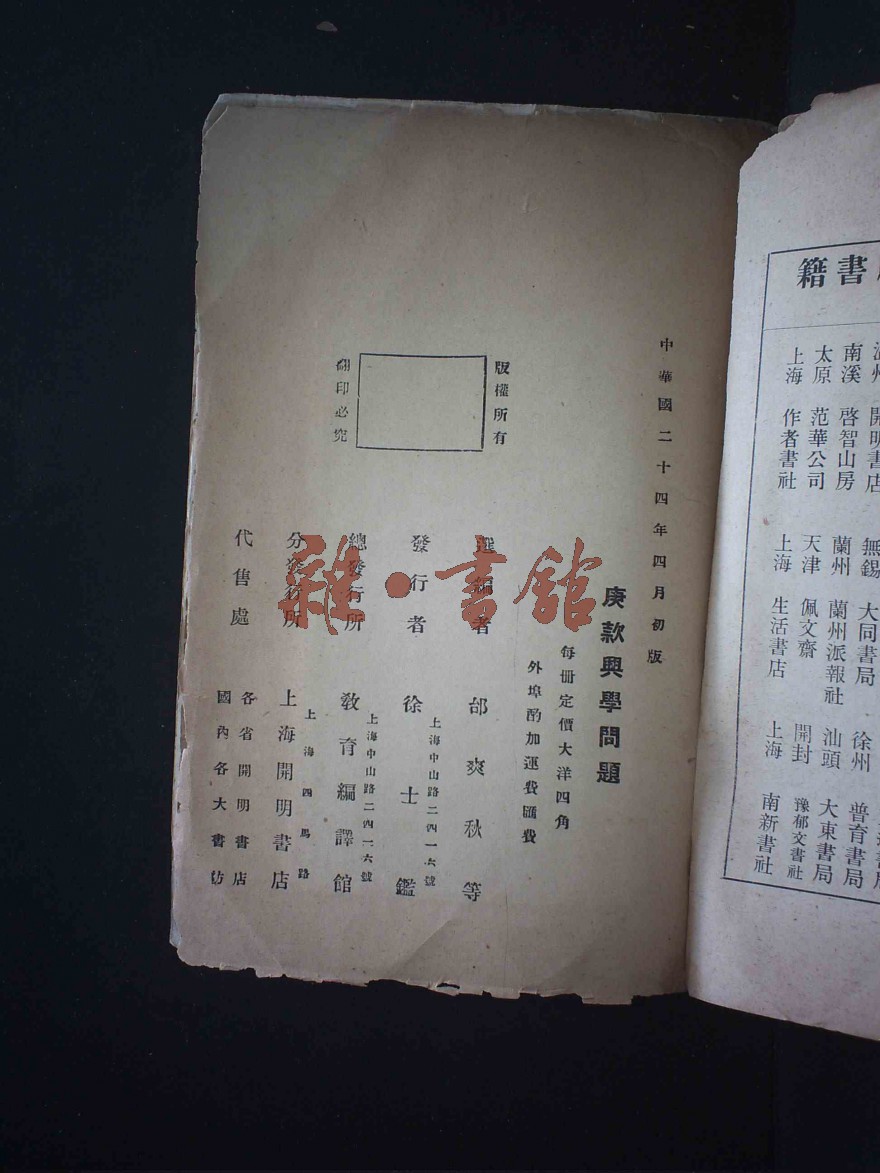 中華國二十四年四月初版
庚款興學問題
每冊定價大洋四角
外埠酌加運費匯費
版權所有
翻印必究
選編者 邰爽秋等
發行者 徐士鑑
上海中山路二四一六號
總發行所 教育編譯館
上海中山路二四一六號
分發行所 上海開明書店
上海四馬路
代售處 各省開明書店
國內各大書坊
雜·書館
書籍
南溪 啓智山房
太原 范華公司
上海 作者書社
無錫 大同書局
蘭州 蘭州派報社
天津 佩文齋
上海 生活書店
徐州 普育書局
汕頭 大東書局
開封 豫郁文書社
上海 南新書社